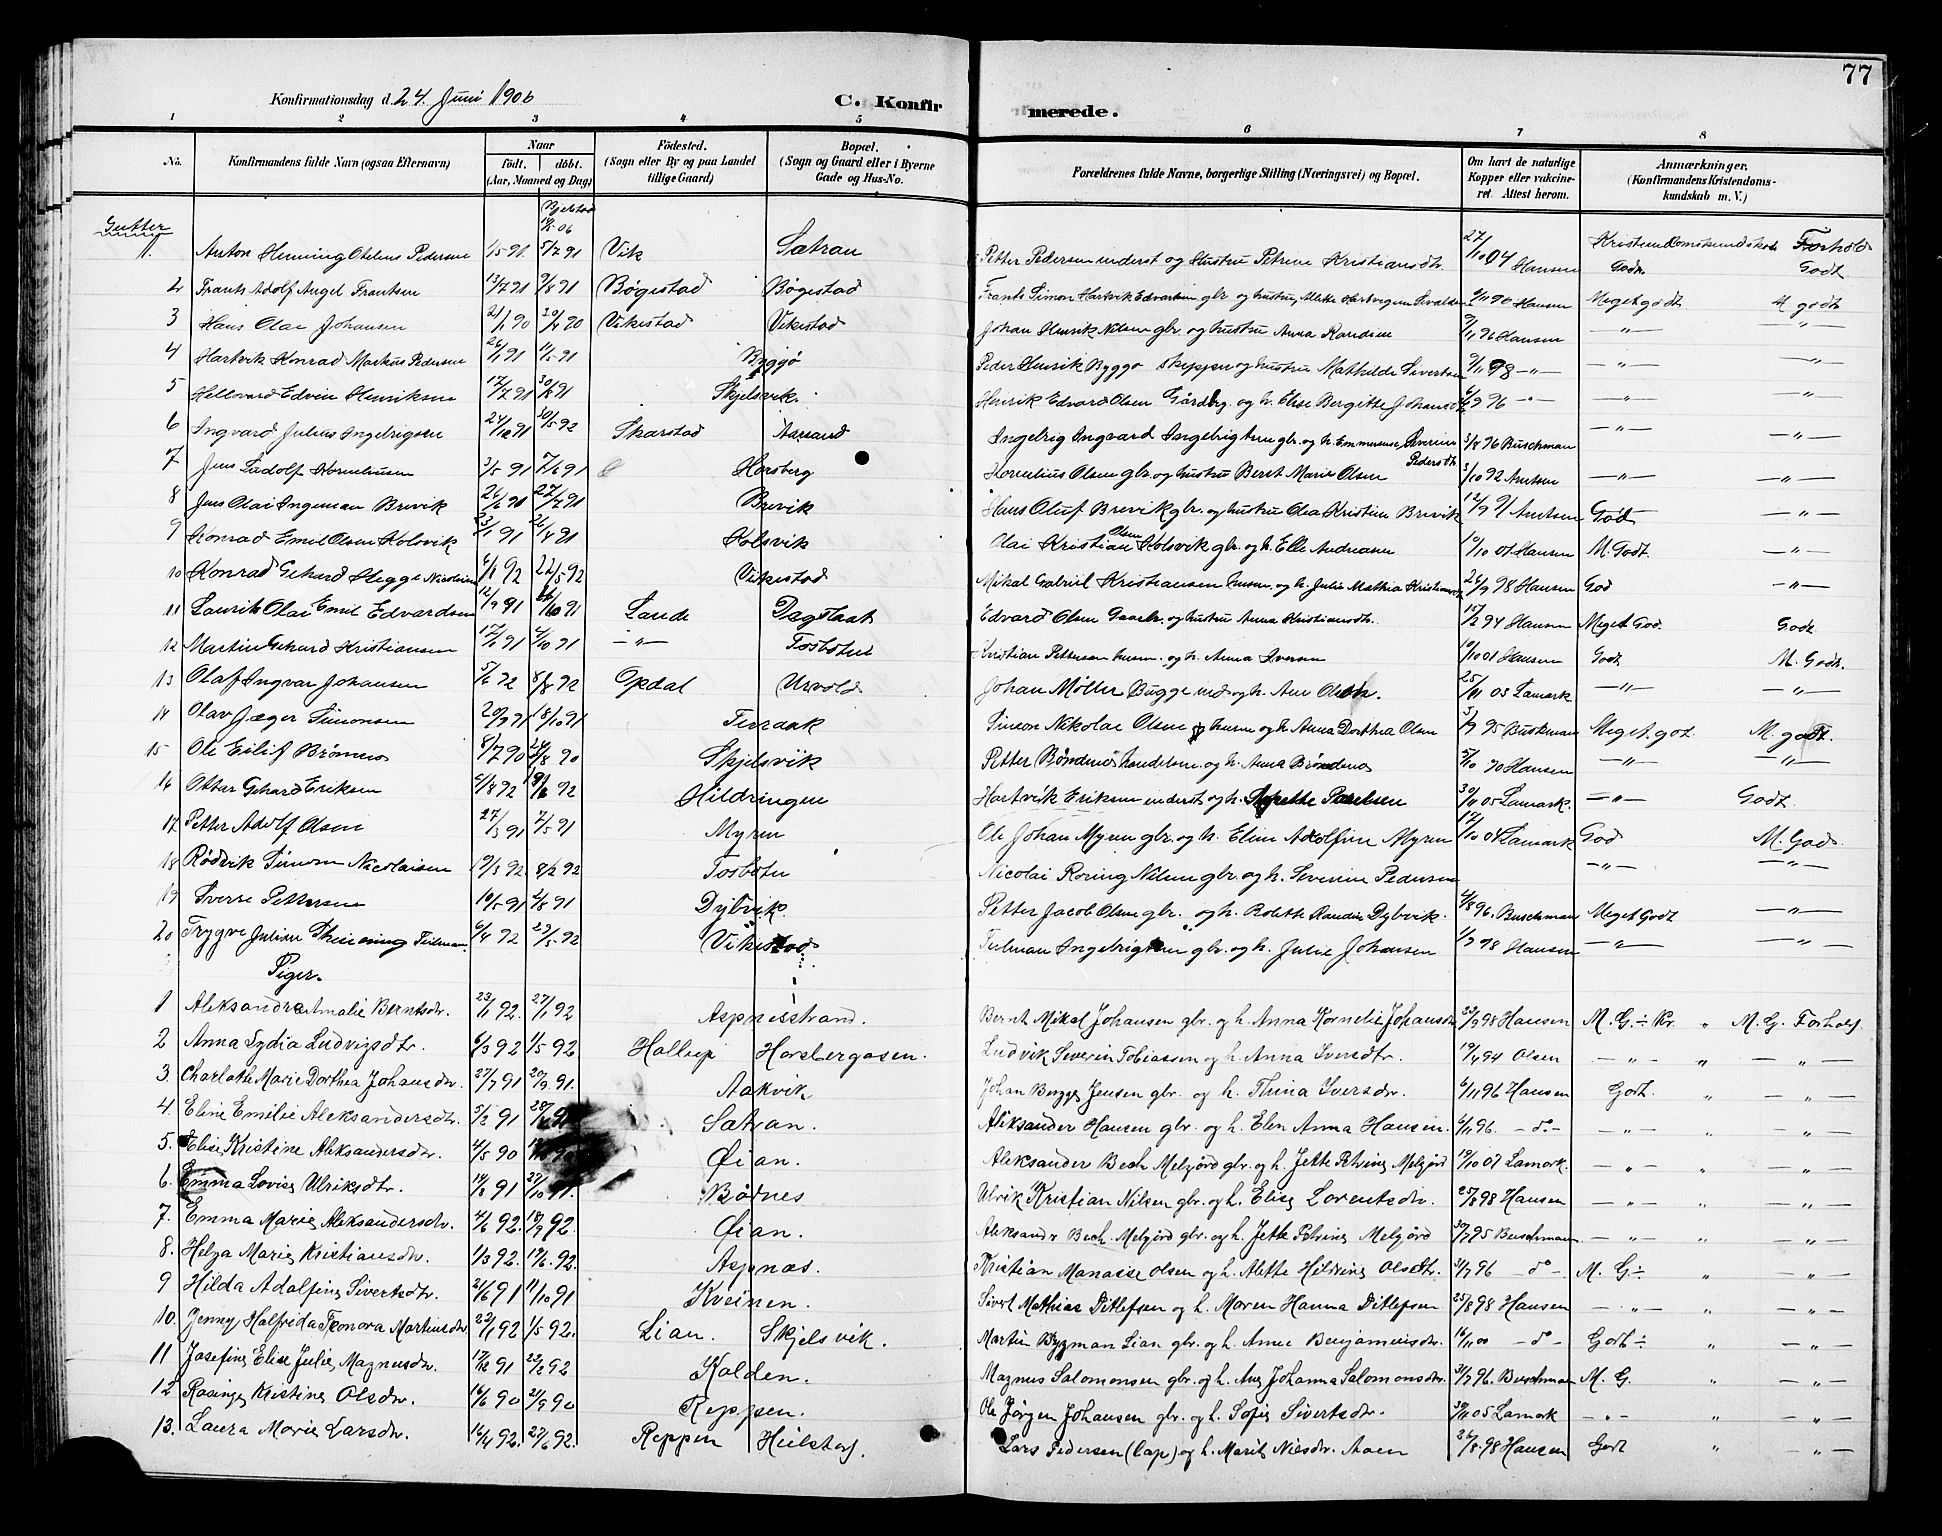 77
Konfirmationsdag d. 24. Juni 1906 C. Konfirmerede.
1 2 3 4 5 6 7 8
No. Konfirmandens fulde Navn (ogsaa Efternavn) Naar födt. döbt. (Aar, Maaned og Dag) Födested. (Sogn eller By og paa Landet tillige Gaard) Bopæl. (Sogn og Gaard eller i Byerne Gade og Hus-No. Forældrenes fulde Navne, borgerlige Stilling (Næringsvei) og Bopæl. Om havt de naturlige Kopper eller vakcineret. Attest herom. Anmærkninger. (Konfirmandens Kristendomskundskab m. V.)
Gutter
1. Anton Henning Pedersen 1/5 91 5/7 91 Vik Sætran Petter Pedersen inderst og Hustru Petrine Kristiansdtr. 27/10 04 Hansen Kristendomskundskab Godt. Forhold Godt
2 Frants Adolf Angel Frantsen 13/7 91 9/8 91 Bøgestad Bøgestad Frants Simon Hartvik Edvartsen gbr. og hustru 90 Hansen Meget godt M. godt
3 Hans Olai Johansen 21/1 90 30/4 90 Vikestad Vikestad Johan Henrik Nilsen gbr. og hustru Anna Randine 9/11 96 Hansen —"— —"—
4 Hartvik Konrad Markus Pedersen 26/1 91 11/5 91 Byggø Peder Henrik Byggø skipper og hustru Mathilde Sivertsen 9/11 98 —"— —"— —"—
5 Hellvard Edvin Henriksen 17/7 91 30/8 91 Skjelsvik. Henrik Edvard Olsen Gårdbr. og h. Elise Bergitte Johansdtr 6/9 96 —"— —"— —"—
6 Ingvard Julius Ingebrigtsen 24/12 91 30/5 92 Skarstad Aarsand Ingebrig Ingvard Ingebrigtsen gbr. og h. Severine Pedersdtr 3/8 96 Buschman —"— —"—
7 Jens Kornelinusen 3/5 91 7/6 91 Horsberg Kornelius Olsen gbr. og hustru Berit Marie Olsen 3/10 92 Arntsen —"— —"—
8 Jens Olai Ingeman Brevik 26/6 91 27/7 91 Brevik Hans Oluf Brevik gbr. og hustru Olea Kristine Brevik 12/9 91 Arntsen God —"—
9 Konrad Emil Olsen Kolsvik 23/1 91 26/4 91 Kolsvik Olai Kristian Olsen Kolsvik gbr. og h. Elle Andreasen 10/10 07 Hansen M. Godt. —"—
10 Konrad Gehard Hegge 92 22/5 92 Vikestad Mikal Gabriel Kristiansen husm. og h. Julie Mathea 26/9 98 Hansen God —"—
11 Laurits Olai Emil Edvardsen 12/9 91 91 Lande Dagslaat Edvard Olsen Gaardb. og hustru Anna Kristiansdtr. 15/2 94 Hansen Meget God. Godt
12 Martin Gehard Kristiansen 17/6 91 4/10 91 —"— Tosbotn Kristian Pettersen husm. og h. Anna Iversen 19/10 01 Hansen Godt M. Godt.
13 Olaf Ingvar Johansen 5/6 92 8/8 92 Opdal Urvold Johan Møller Bugge og h. Ane 25/11 03 Lamark —"— —"—
14 Olav Jæger Simonsen 20/9 91 18/10 91 Terraak Simon Nikolai Olsen husm og h. Anna Dorthea Olsen 3/9 95 Buskman Meget got. M. godt.
15 Ole Eilif Brønnes 8/7 90 24/8 90 Skjelsvik Petter Brøndmo handelsm. og h. Anna Brøndmo 5/10 90 Hansen —"— —"—
16 Ottar Gehard Eriksen 92 92 Hildringen Hartvik Eriksen inderst og h. 30/11 05 Lamark. —"— Godt.
17. Petter Adolf Olsen 27/3 91 7/5 91 Myren Ole Johan Myren gbr. og h. Eline Adolfine Myren 17/10 04 Lamark God M. God
18 Rødvik Simon Nicolaisen 19/3 92 8/2 92 Tosbotn Nicolai Roring Nilsen gbr. og h. Severine Pedersen —"—
19 Sverre Pettersen 10/5 91 2/8 91 Dybvik. Petter Jacob Olsen gbr. og h. Bolette Randine Dybvik. 4/8 96. Buschman Meget Godt —"—
20 Trygve Julian Teilman 6/4 92 23/5 92 Vikestad Teilman Ingebrigtsen gbr. og h. Julie Johansen 1/9 98 Hansen —"— —"—
Piger.
1 Aleksandra Amalie Berntsdtr. 23/1 92. 27/1 92 Aspnesstrand. Bernt Mikal Johansen gbr. og h. Anna Kornelie Johansdtr 23/9 98 Hansen M. G. ÷ Kr. " M. G. Forhold
2 Anna Lydia Ludvigsdtr. 6/3 92 1/5 92 Horsbergaasen. Ludvik Severin Tobiassen og h. Anna Iversdtr. 19/4 94 Olsen —"— " —"—
3. Charlotte Marie Dorthea Johansdtr. 27/7 91 20/9 91. Aakvik Johan Bugge Jensen gbr. og h. Trina Iversdtr. 6/11 96 Hansen Godt. —"—
4. Eline Emilie Aleksandersdtr. 5/2 91 28/ 91 Sætran. Aleksander Hansen gbr. og h. Elen Anna Hansen. 4/11 96. —d°— —"— " —"—
5. Elise Kristine Aleksandersdtr. 4/5 90 90 Øian. Aleksander Bech Melgård gbr. og h. Jette Petrine Melgård 19/10 07 Lamark. —"— " —"—
6. Emma Lovise Ulriksdtr. 14/8 91 27/10 91. Bødnes Ulrik Kristian Nilsen gbr. og h. Elise Lorentsdtr. 25/8 98 Hansen —"— " —"—
7. Emma Marie Aleksandersdtr. 4/6 92. 18/9 92. Øian. Aleksander Bech Melgård gbr. og h. Jette Petrine Melgård 30/7 95 Buschman —"— " —"—
8. Helga Marie Kristiansdtr. 1/3 92. 19/6 92. Aspnæs. Kristian Manasse Olsen og h. Alette Hildrine Olsdtr. 31/7 96 —d°— M. G ÷ " —"—
9 Hilda Adolfine Sivertsdtr. 24/6 91 11/10 91 Kveinen. Sivert Mathias Ditlefsen og h. Maren Hanna Ditlefsen 25/8 98 Hansen —"— " —"—
10. Jenny Halfrida Martinsdtr 23/1 92 1/5 92. Lian. Skjelsvik. Martin Bygman Lian gbr. og h. Anne Benjaminsdtr. 16/11 00 —d°— Godt ÷ " —"—
11 Josefine Elise Julie Magnusdtr. 17/12 91 23/2 92 Kolden. Magnus Salomonsen gbr. og h. Johanna Salomonsdtr. 31/7 96. Buschman M. G. " —"—
12 Rasine Kristine Olsdtr. 16/6 90 21/9 90 Reppen. Ole Jørgen Johansen gbr. og h. Sofie Sivertsdtr. 30/11 05 Lamark —"— " —"—
13. Laura Marie Larsdtr. 16/4 92. 27/6 92. Reppen Heilstad. Lars Pedersen (Lap) og h. Marit Nilsdtr. Aaen 26/8 98 Hansen Godt " —"—